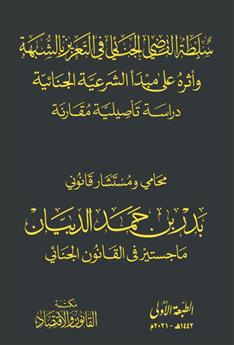 سُلطة القاضي الجنائي في التعزير بالشبهة
وأثره على مبدأ الشرعية الجنائية
دراسة تأصيلية مُقارنة
محامي ومُستشار قانوني
بدر بن حمد الدبيان
ماجستير في القانون الجنائي
مكتبة
القانون والاقتصاد
الطبعة الأولى
١٤٤٢هـ - ٢٠٢١م